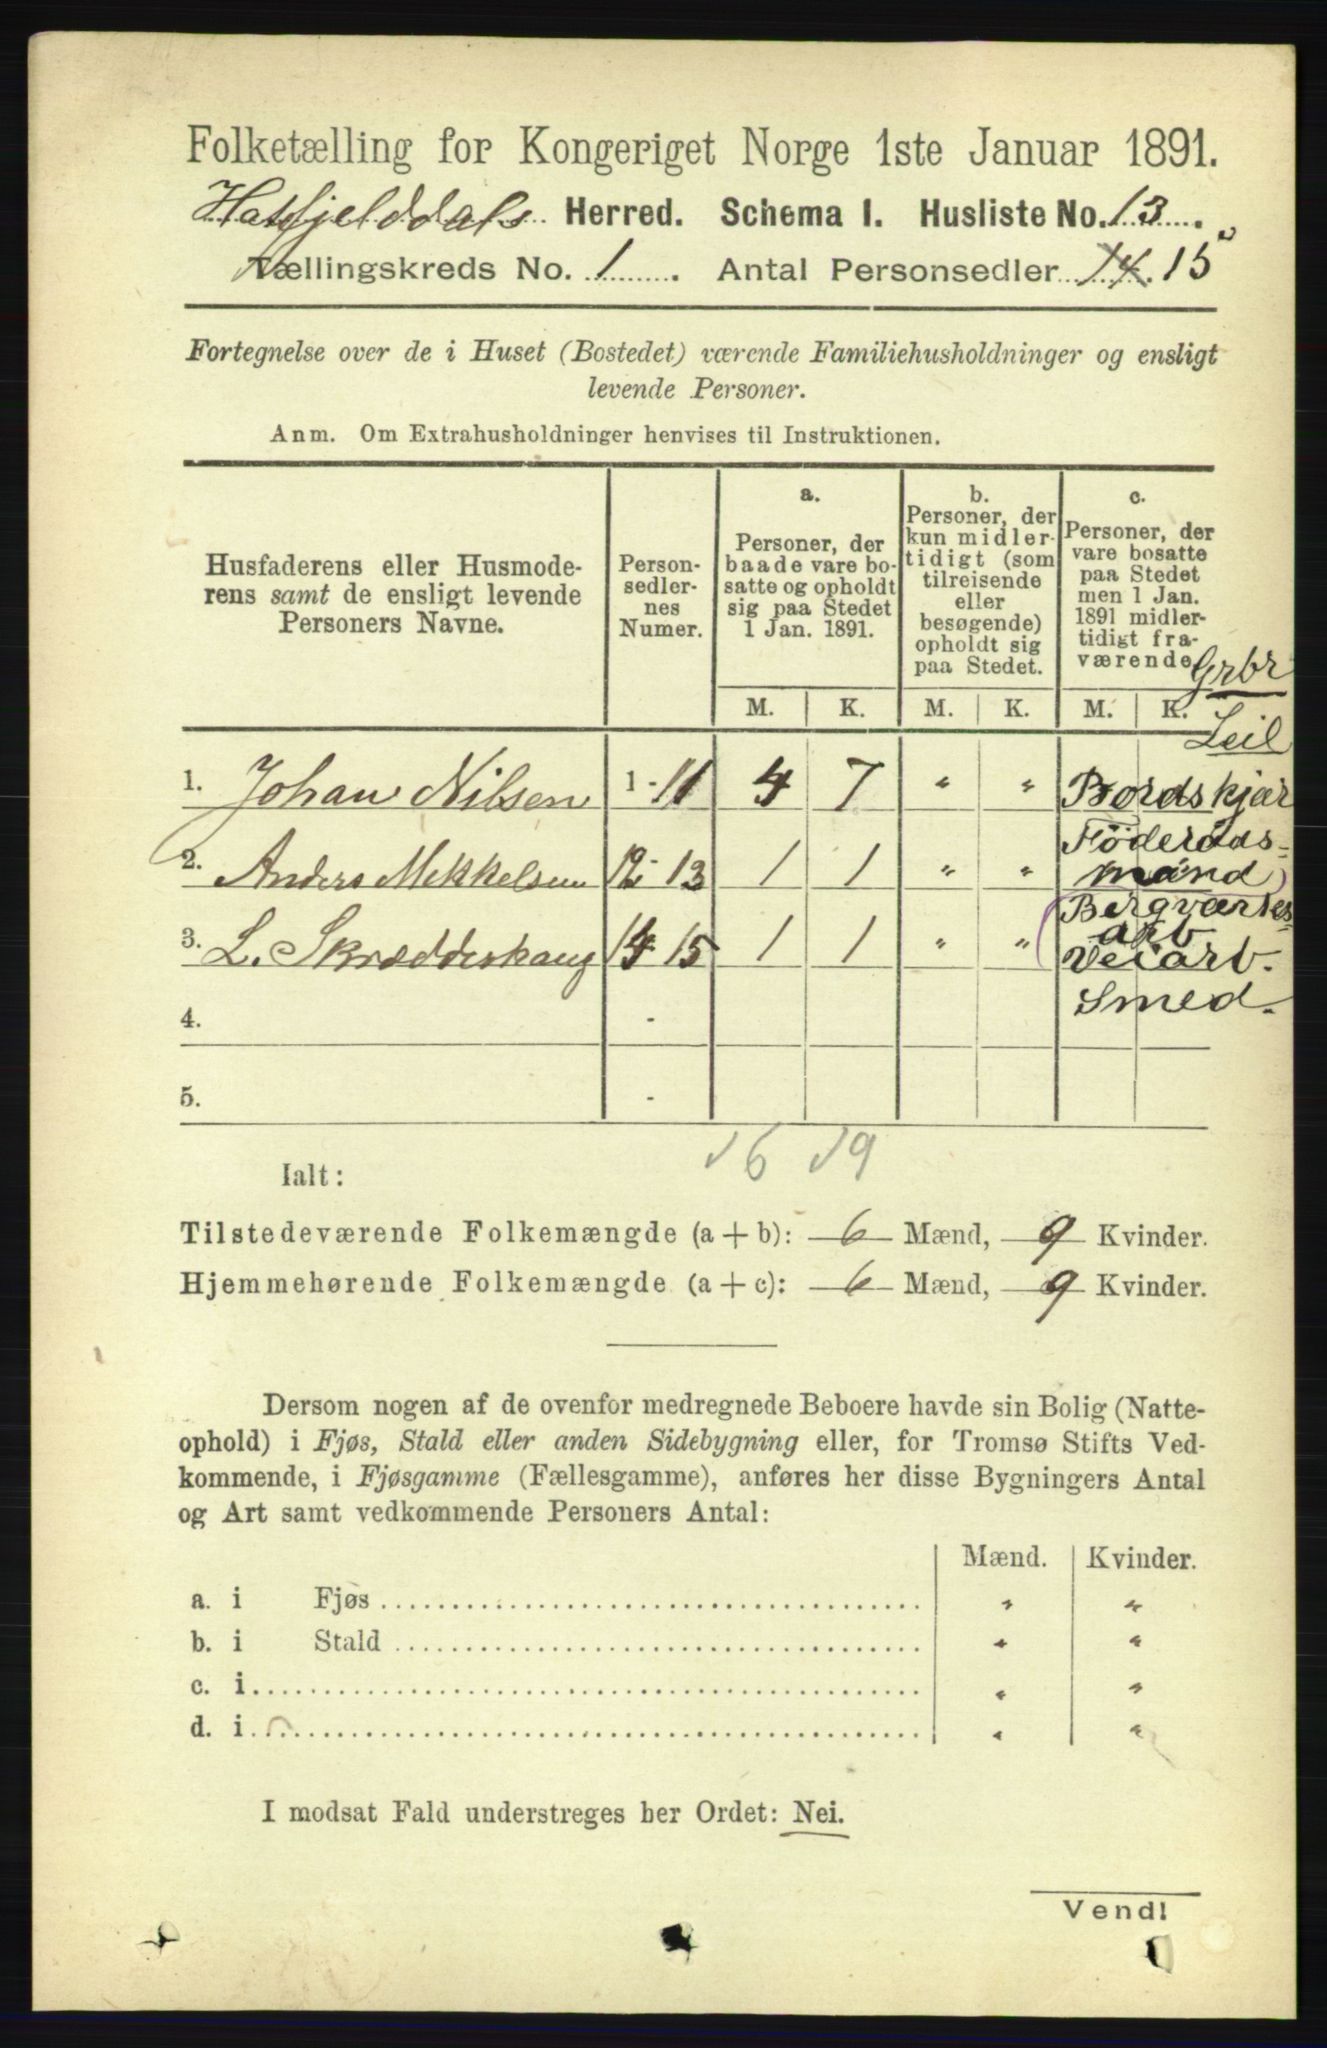 Folketælling for Kongeriget Norge 1ste Januar 1891.
Hatfjelddals Herred. Schema I. Husliste No. 13.
Tællingskreds No. 1. Antal Personsedler 14 15
Fortegnelse over de i Huset (Bostedet) værende Familiehusholdninger og ensligt
levende Personer.
Anm. Om Extrahusholdninger henvises til Instruktionen.
Husfaderens eller Husmode-
rens samt de ensligt levende
Personers Navne.
Person-
sedler-
nes
Numer.
a.
Personer, der
baade vare bo-
satte og opholdt
sig paa Stedet
1 Jan. 1891.
b.
Personer, der
kun midler-
tidigt (som
tilreisende
eller
besøgende)
opholdt sig
paa Stedet.
c.
Personer, der
vare bosatte
paa Stedet
men 1 Jan.
1891 midler-
tidigt fra-
værende
Grbr
M. K. M. K. M. K.
Leil
1. Johan Nilsen 1 - 11 4 7 " " Bordskjær
Föderaads-
2. Anders Mekkelsen 12 - 13 1 1 " " mand
Bergværks-
arb
3. L. Skrædderhaug 14 15 1 1 " " Veiarb.
Smed.
4. -
5. -
6 9
Ialt:
Tilstedeværende Folkemængde (a + b): 6 Mænd, 9 Kvinder.
Hjemmehørende Folkemængde (a + c): 6 Mænd, 9 Kvinder.
Dersom nogen af de ovenfor medregnede Beboere havde sin Bolig (Natte-
ophold) i Fjøs, Stald eller anden Sidebygning eller, for Tromsø Stifts Ved-
kommende, i Fjøsgamme (Fællesgamme), anføres her disse Bygningers Antal
og Art samt vedkommende Personers Antal:
Mænd. Kvinder.
a. i Fjøs " "
b. i Stald " "
c. i " "
d. i " "
I modsat Fald understreges her Ordet: Nei.
Vend!